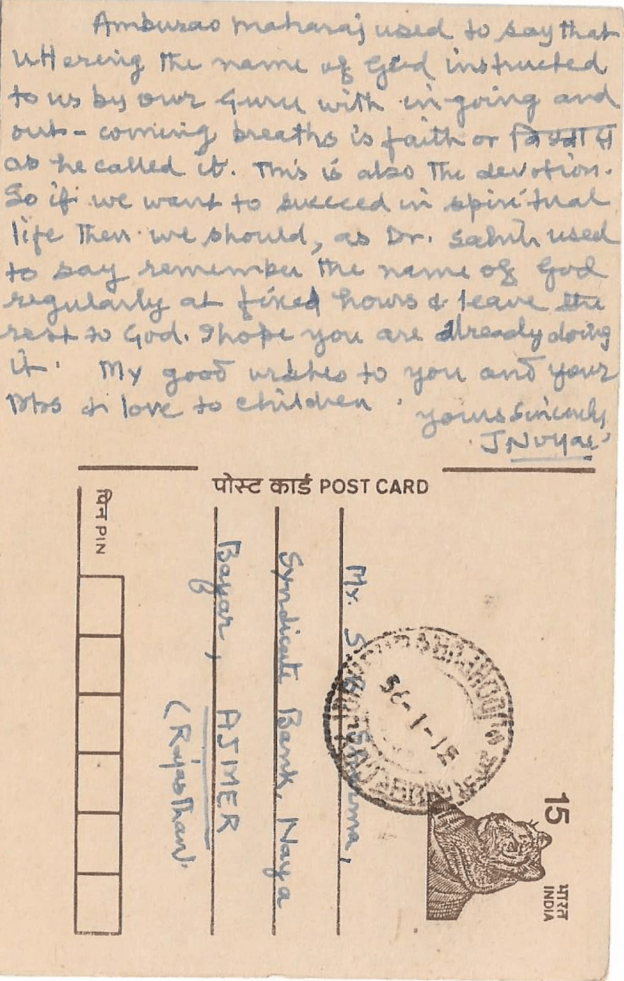 Amburao maharaj used to say that
uttering the name of God instructed
to us by our Guru with in-going and
out-coming breaths is faith or विश्वास
as he called it. This is also the devotion.
So if we want to succeed in spiritual
life then we should, as Dr. Sahib used
to say remember the name of God
regularly at fixed hours & leave the
rest to God. I hope you are already doing
it. My good wishes to you and your
Mrs & love to children. yours sincerely
JNVyas
पोस्ट कार्ड POST CARD
पिन PIN
Mr.
Syndicate Bank, Naya
Bazar, AJMER
(Rajasthan)
15
भारत
INDIA